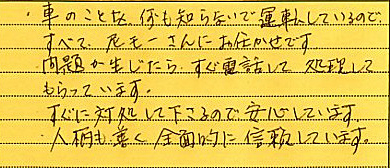 ・車のことは、何も知らないで運転しているので、
すべて、尼モーさんにお任かせです
・問題が生じたら、すぐ電話して処理して
もらっています。
すぐに対処して下さるので安心しています。
・人柄も善く全面的に信頼しています。